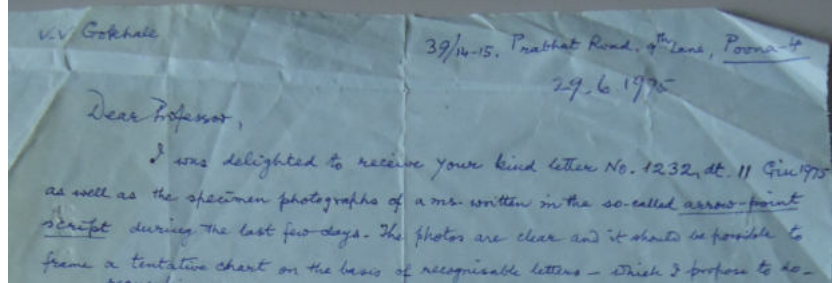 V.V Gokhale
39/14-15, Prabhat Road, 9th Lane, Poona-4
29.6.1975
Dear Professor,
I was delighted to receive your kind letter No. 1232, dt. 11 Giu 1975
as well as the specimen photographs of a ms. written in the so-called arrow-point
script during the last few days. The photos are clear and it should be possible to
frame a tentative chart on the basis of recognisable letters – which I propose to do –